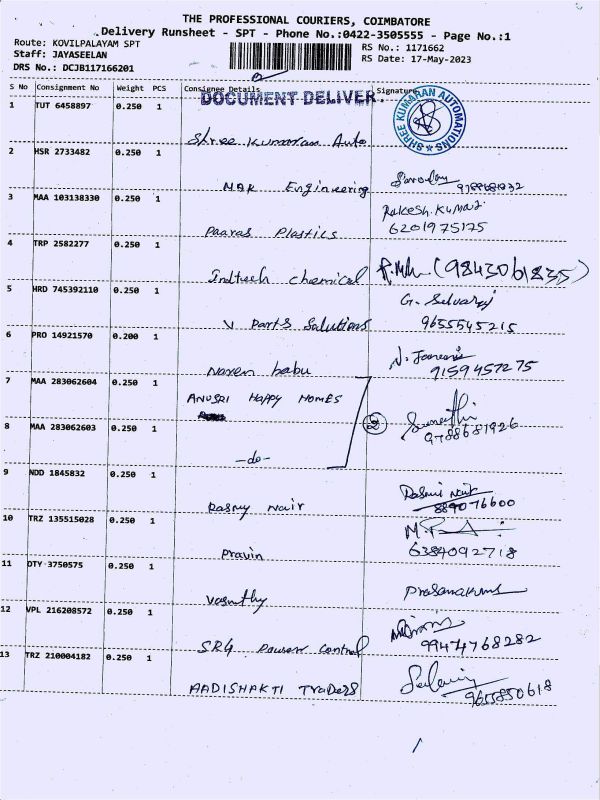 THE PROFESSIONAL COURIERS, COIMBATORE
Delivery Runsheet - SPT - Phone No.:0422-3505555 - Page No.:1
Route: KOVILPALAYAM SPT
Staff: JAYASEELAN
DRS No.: DCJB117166201
RS No.: 1171662
RS Date: 17-May-2023
S No Consignment No Weight PCS Consignee Details Signature
DOCUMENT DELIVER.
SHREE KUMARAN AUTOMATIONS
1 TUT 6458897 0.250 1
Shree Kumaran Auto
2 HSR 2733482 0.250 1
MAK Engineering
3 MAA 103138330 0.250 1
Paaras Plastics Rakesh.Kumar
6201975175
4 TRP 2582277 0.250 1
Indtech chemical (9843061835)
5 HRD 745392110 0.250 1
V Parts Solutions G. Selvaraj
9655545215
6 PRO 14921570 0.200 1
Naren babu
9159457275
7 MAA 283062604 0.250 1
ANUSRI Happy HOMES
8 MAA 283062603 0.250 1
-do- 2
9788681926
9 NDD 1845832 0.250 1
Rasmy Nair Rasmi Nair
889076600
10 TRZ 135515028 0.250 1
Pravin
6384092718
11 OTY 3750575 0.250 1
Vasnthy
12 VPL 216208572 0.250 1
SRG Power Control
99474768282
13 TRZ 210004182 0.250 1
AADISHAKTI Traders
9655850618